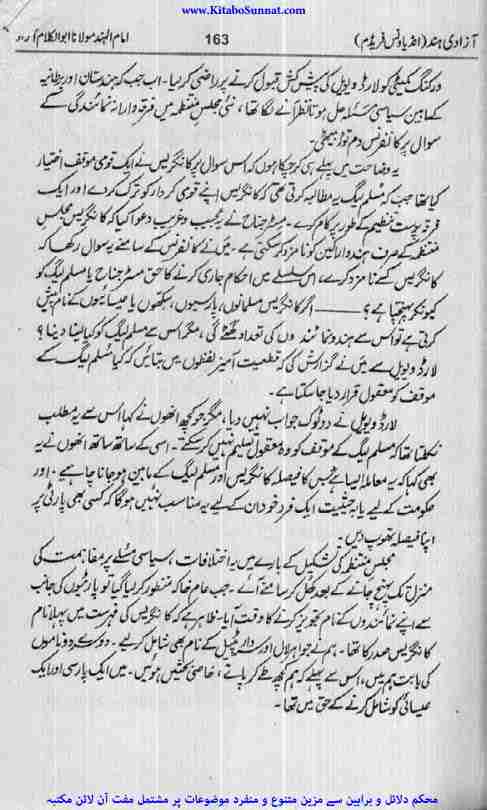 www.KitaboSunnat.com
آزادی ہند (انڈیا ونس فریڈم) 163 امام الہند مولانا ابوالکلام آزاد
ورکنگ کمیٹی کو لارڈ ویول کی پیش کش قبول کرنے پر راضی کر لیا۔ اب جب کہ ہندستان اور برطانیہ
کے مابین سیاسی مسئلہ حل ہوتا نظر آنے لگا تھا، نئی مجلس منتظمہ میں فرقہ وارانہ نمائندگی کے
سوال پر کانفرنس دم توڑ بیٹھی۔
یہ وضاحت میں پہلے ہی کر چکا ہوں کہ اس سوال پر کانگریس نے ایک قومی موقف اختیار
کیا تھا جب کہ مسلم لیگ یہ مطالبہ کرتی تھی کہ کانگریس اپنے قومی کردار کو ترک کر دے اور ایک
فرقہ پرست تنظیم کے طور پر کام کرے۔ مسٹر جناح نے یہ عجیب و غریب دعوا کیا کہ کانگریس مجلس
منتظمہ کے صرف ہندو اراکین کو نامزد کر سکتی ہے۔ میں نے کانفرنس کے سامنے یہ سوال رکھا کہ
کانگریس کسے نامزد کرے، اس سلسلے میں احکام جاری کرنے کا حق مسٹر جناح یا مسلم لیگ کو
کیونکر پہنچتا ہے؟ ——— اگر کانگریس مسلمانوں، پارسیوں، سکھوں یا عیسائیوں کے نام پیش
کرتی ہے تو اس سے ہندو نمائندوں کی تعداد گھٹے گی، مگر اس سے مسلم لیگ کو کیا لینا دینا؟
لارڈ ویول سے میں نے گزارش کی کہ قطعیت آمیز لفظوں میں بتائیں کہ کیا مسلم لیگ کے
موقف کو معقول قرار دیا جا سکتا ہے۔
لارڈ ویول نے دو ٹوک جواب نہیں دیا، مگر جو کچھ انھوں نے کہا اس سے یہ مطلب
نکلتا تھا کہ مسلم لیگ کے موقف کو وہ معقول تسلیم نہیں کر سکتے۔ اسی کے ساتھ ساتھ انھوں نے یہ
بھی کہا کہ یہ معاملہ ایسا ہے جس کا فیصلہ کانگریس اور مسلم لیگ کے مابین ہو جانا چاہیے۔ اور
حکومت کے لیے یا بہ حیثیت ایک فرد خود ان کے لیے یہ مناسب نہیں ہو گا کہ کسی بھی پارٹی پر
اپنا فیصلہ تھوپ دیں۔
مجلس منتظمہ کی تشکیل کے بارے میں یہ اختلافات، سیاسی مسئلے پر مفاہمت کی
منزل تک پہنچ جانے کے بعد کھل کر سامنے آئے۔ جب عام خاکہ منظور کر لیا گیا تو پارٹیوں کی جانب
سے اپنے نمائندوں کے نام تجویز کرنے کا وقت آیا۔ ظاہر ہے کہ کانگریس کی فہرست میں پہلا نام
کانگریس صدر کا تھا۔ ہم نے جواہر لال اور سردار پٹیل کے نام بھی شامل کر لیے۔ دوسرے دو ناموں
کی بابت ہم میں، اس سے پہلے کہ ہم کچھ طے کر پاتے، خاصی بحثیں ہوئیں۔ میں ایک پارسی اور ایک
عیسائی کو شامل کرنے کے حق میں تھا۔
محکم دلائل و براہین سے مزین متنوع و منفرد موضوعات پر مشتمل مفت آن لائن مکتبہ